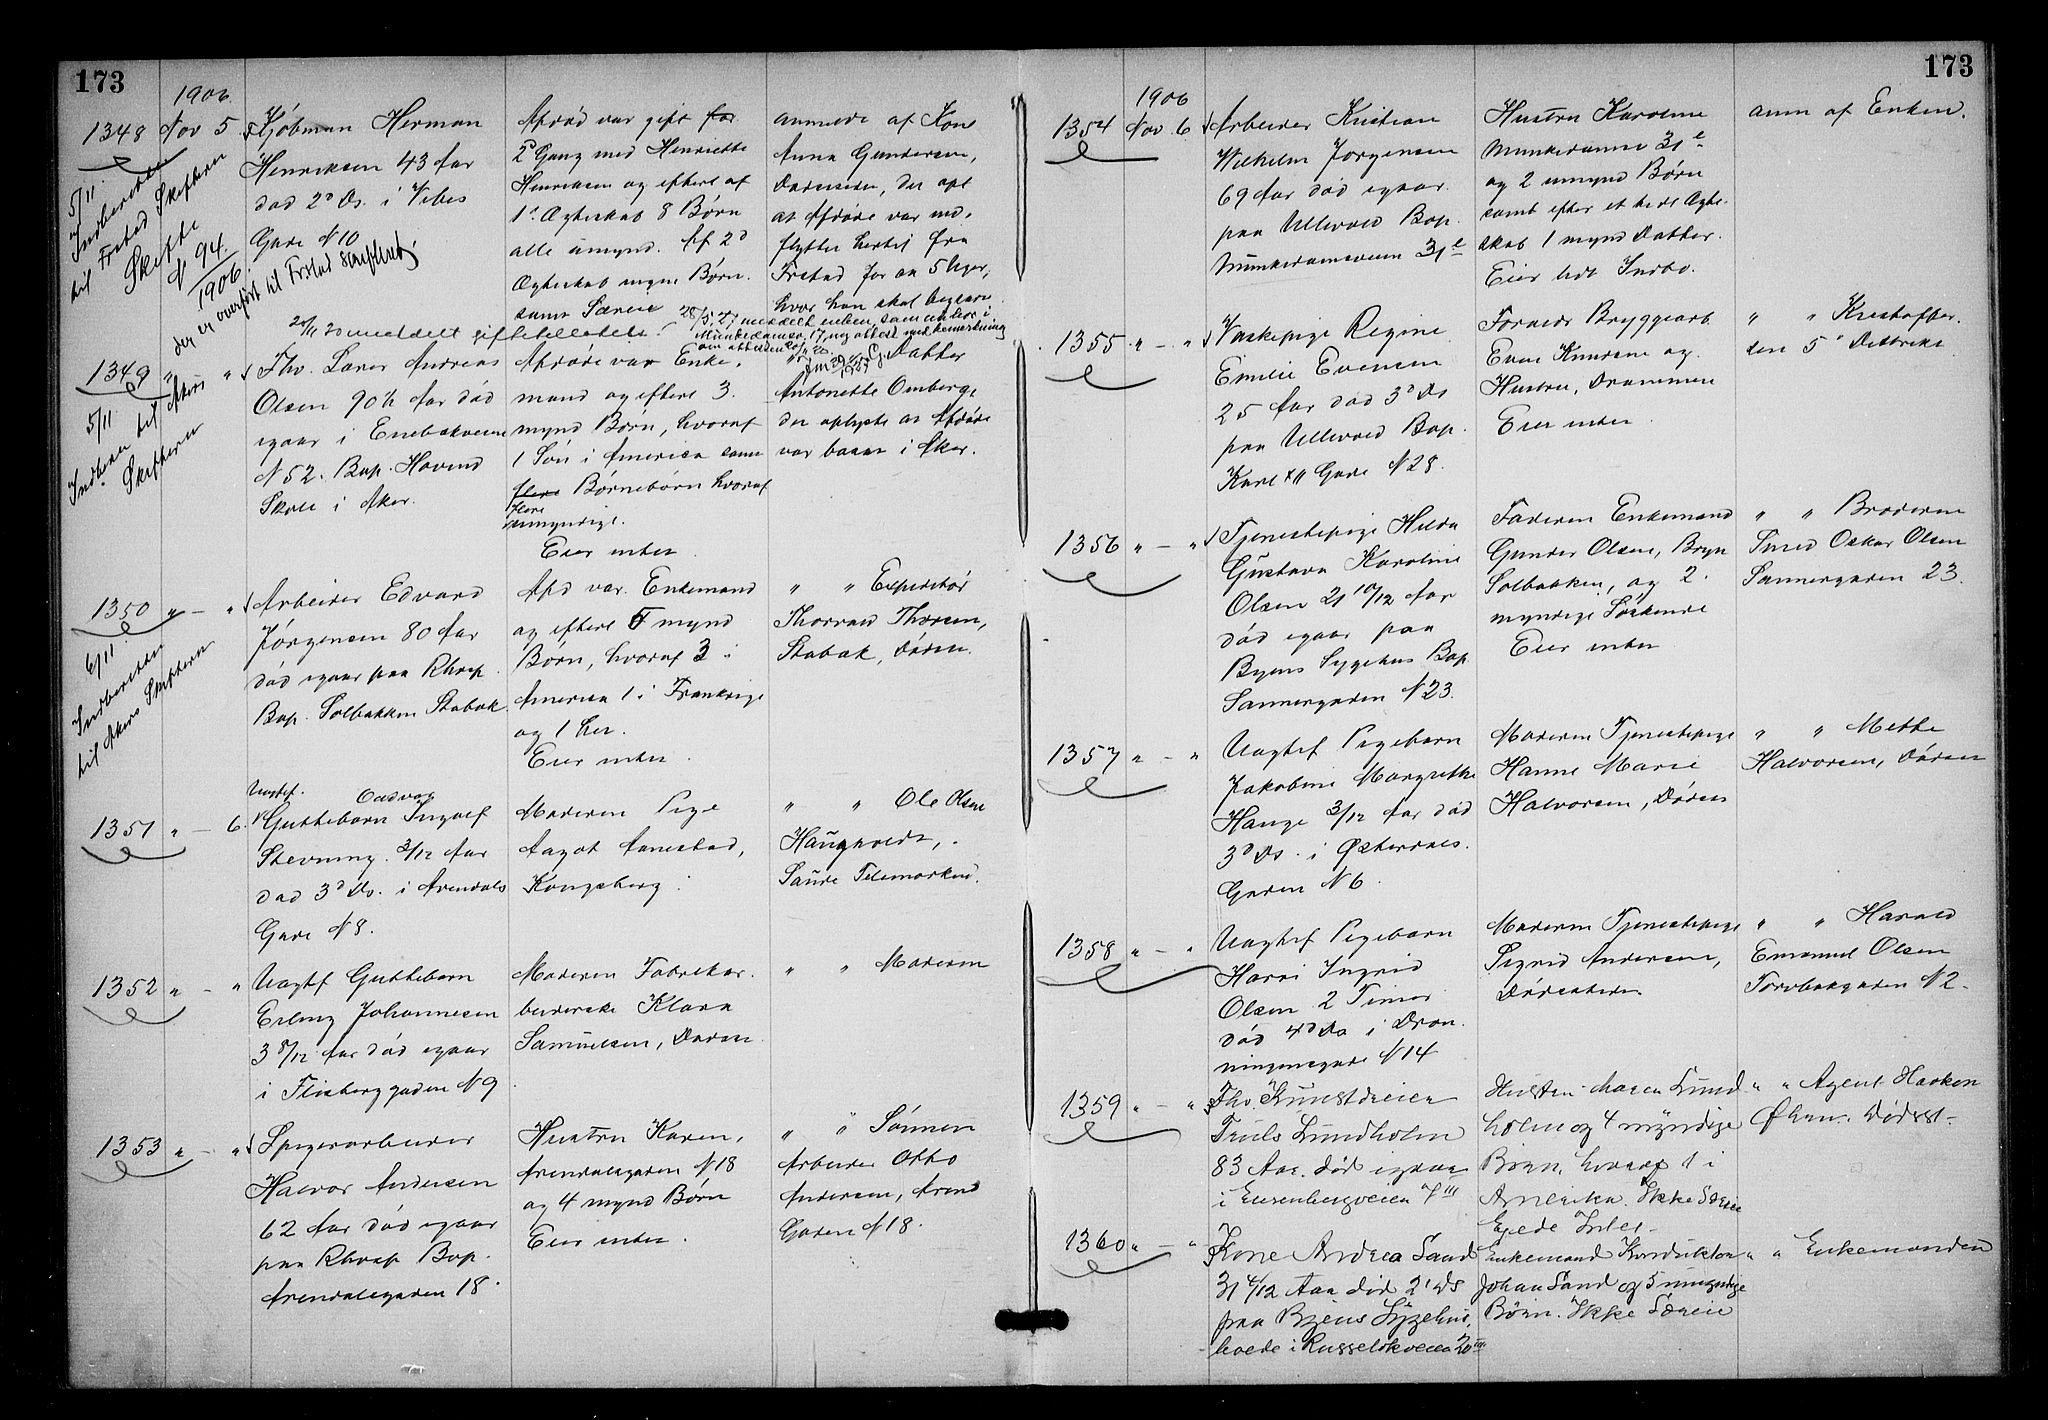 173
1906.
1348 Nov 5 Kjøbman Herman
Henriksen 43 Aar
død 2' Ds. i Vibes
Gade N 10
Afdød var gift for
2' Gang med Henriette
Henriksen og efterl af
1' Ægteskab 8 Børn
alle umynd. Af 2'
Ægteskab ingen Børn.
samt Særeie
anmeldt af Kone
Anna Gundersen,
Dødsstedet, der opl
at Afdøde var ind-
flyttet hertil fra
Frstad for ca 5 Uger,
hvor han skal begraves
5/11
Indberettet
til Frstad Skifteret
Skifte
N 94.
1906.
der overført til Frstad Skifteret
20/11 20 meddelt gifte
28/5 meddelt enken, som
Munkedamsv. 17, ny attest med bemerkning
om
1349 " " Fhv. Lærer Andreas
Olsen 90 1/2 Aar død
igaar i Enebakveien
N 52. Bop. Hovind
Skole i Aker.
Afdøde var Enke-
mand og efterl 3
mynd Børn, hvoraf
1 Søn i America samt
flere Børnebørn hvoraf
flere
umyndige.
Eier intet
Datter
Antonette Omberg,
der oplyste at Afdøde
var bosat i Aker.
5/11
Indberettet til Akers
Skifteret
1350 " — " Arbeider Edvard
Jörgensen 80 Aar
død igaar paa Rhosp.
Bop. Solbakken Stabæk
Afd var Enkemand
og efterl 5 mynd
Børn, hvoraf 3 i
America 1 i Frankrige
og 1 her.
Eier intet
" " Expeditør
Thorvald Thorsen,
Stabæk, Døden.
6/11
Indberettet
til Akers Skifteret
1351 " — 6. Uægtef. Oddvar
Guttebarn Ingolf
Stevning 3/12 Aar
død 3' Ds. i Arendals
Gade N 8.
Moderen Pige
Aagot Aanestad,
Kongsberg
" " Ole Olsen
Haugholdt,
Saude Telemarken.
1352 " — " Uægtef Guttebarn
Erling Johannesen
3 8/12 Aar død igaar
i Flisberggaden N 9
Moderen Fabrikar-
beiderske Klara
Samuelsen, Døden
" " Moderen
1353 " — " Spigerarbeider
Halvor Andersen
62 Aar død igaar
paa Rhosp Bop.
Arendalsgaden 18.
Hustru Karen,
Arendalsgaden N 18
og 4 mynd Børn
Eier intet.
" " Sønnen
Arbeider Otto
Andersen, Arend
Gaden N 18.
173
1906
1354 Nov 6 Arbeider Kristian
Wilhelm Jörgensen
69 Aar død igaar
paa Ullevold Bop.
Munkedamsveien 31 e
Hustru Karoline
Munkedamsv 31 e
og 2 umynd Børn
samt efter et tidl Ægte-
skab 1 mynd Datter.
Eier lidt Indbo.
anm af Enken.
1355 " — " Vaskepige Regine
Emilie Evensen
25 Aar død 3' Ds
paa Ullevold Bop.
Karl XII Gade N 28.
Forældre Bryggearb.
Even Knudsen og
Hustru, Drammen
Eier intet
" " Kristoffer
den 5' Distrikt
1356 " — " Tjenestepige Hilda
Gustava Karoline
Olsen 21 10/12 Aar
død igaar paa
Byens Sygehus Bop
Sannergaden N 23.
Faderen Enkemand
Gunder Olsen, Bryn
Solbakken, og 2
myndige Søskende
Eier intet
" " Broderen
Smed Oskar Olsen
Sannergaden 23.
1357 " — " Uægtef Pigebarn
Jakobine Margrethe
Hauge 3/12 Aar død
3' Ds. i Østerdals-
Gaden N 6.
Moderen Tjenestepige
Hanne Marie
Halvorsen, Døden
" " Mette
Halvorsen, Døden
1358 " — " Uægtef Pigebarn
Harri Ingrid
Olsen 2 Timer
død 4' Ds i Dron-
ningensgade N 14
Moderen Tjenestepige
Sigrid Andersen,
Dødsstedet
" " Harald
Emanuel Olsen
Torvbakgaden N 2.
1359 " — " Fhv. Kunstdreier
Truls Lundholm
83 Aar. død igaar
i Eusenbergveien 7 III
Hustru Maren Lund-
holm og 4 myndige
Børn, hvoraf 1 i
Amerika. Ikke Særeie
Eiede Intet
" " Agent Haakon
Øhrn. Dødsst.
1360 " — " Kone Andrea Sand
31 4/12 Aar død 2' Ds
paa Byens Sygehus,
boede i Russeløkveien 20 III
Enkemand Konduktør
Johan Sand og 5 umyndige
Børn. Ikke Særeie
" " Enkemanden